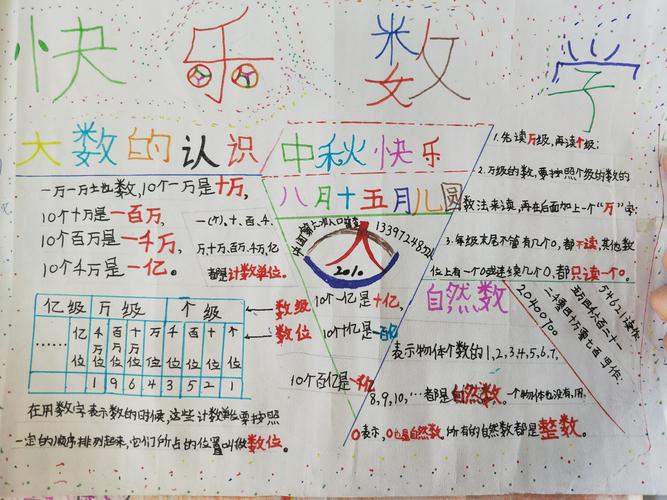 快乐数学
大数的认识
一万一万地数,10个一万是十万,
10个十万是一百万,
10个百万是一千万,
10个千万是一亿。
一(个)、十、百、千、
万、十万、百万、千万、亿
都是计数单位。
亿级 万级 个级
←数级
…… 亿位 千万位 百万位 十万位 万位 千位 百位 十位 个位
←数位
1 9 6 4 3 5 2 1
在用数字表示数的时候,这些计数单位要按照
一定的顺序排列起来,它们所占的位置叫做数位。
中秋快乐
八月十五月儿圆
人
2010
10个一亿是十亿,
10个十亿是一百亿
10个百亿是一千亿
1.先读万级,再读个级;
2.万级的数,要按照个级的数的
数法来读,再在后面加上一个"万"字;
3.每级末尾不管有几个0,都不读,其他数
位上有一个0或连续几个0,都只读一个0。
自然数
表示物体个数的1,2,3,4,5,6,7,
8,9,10,…都是自然数。一个物体也没有,用
0表示,0也是自然数,所有的自然数都是整数。
20400700
二千零四十万零七百